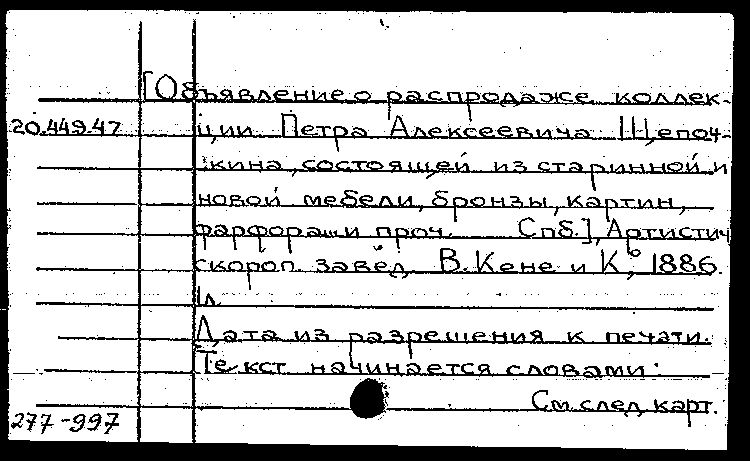 [Объявление о распродаже коллек-
20.449.47 ции Петра Алексеевича Щепоч-
кина, состоящей из старинной и
новой мебели, бронзы, картин,
фарфора и проч. Спб.], Артистич
скороп. завед. В. Кене и К°, 1886.
1 л.
Дата из разрешения к печати.
Текст начинается словами:
См. след. карт.
277-997